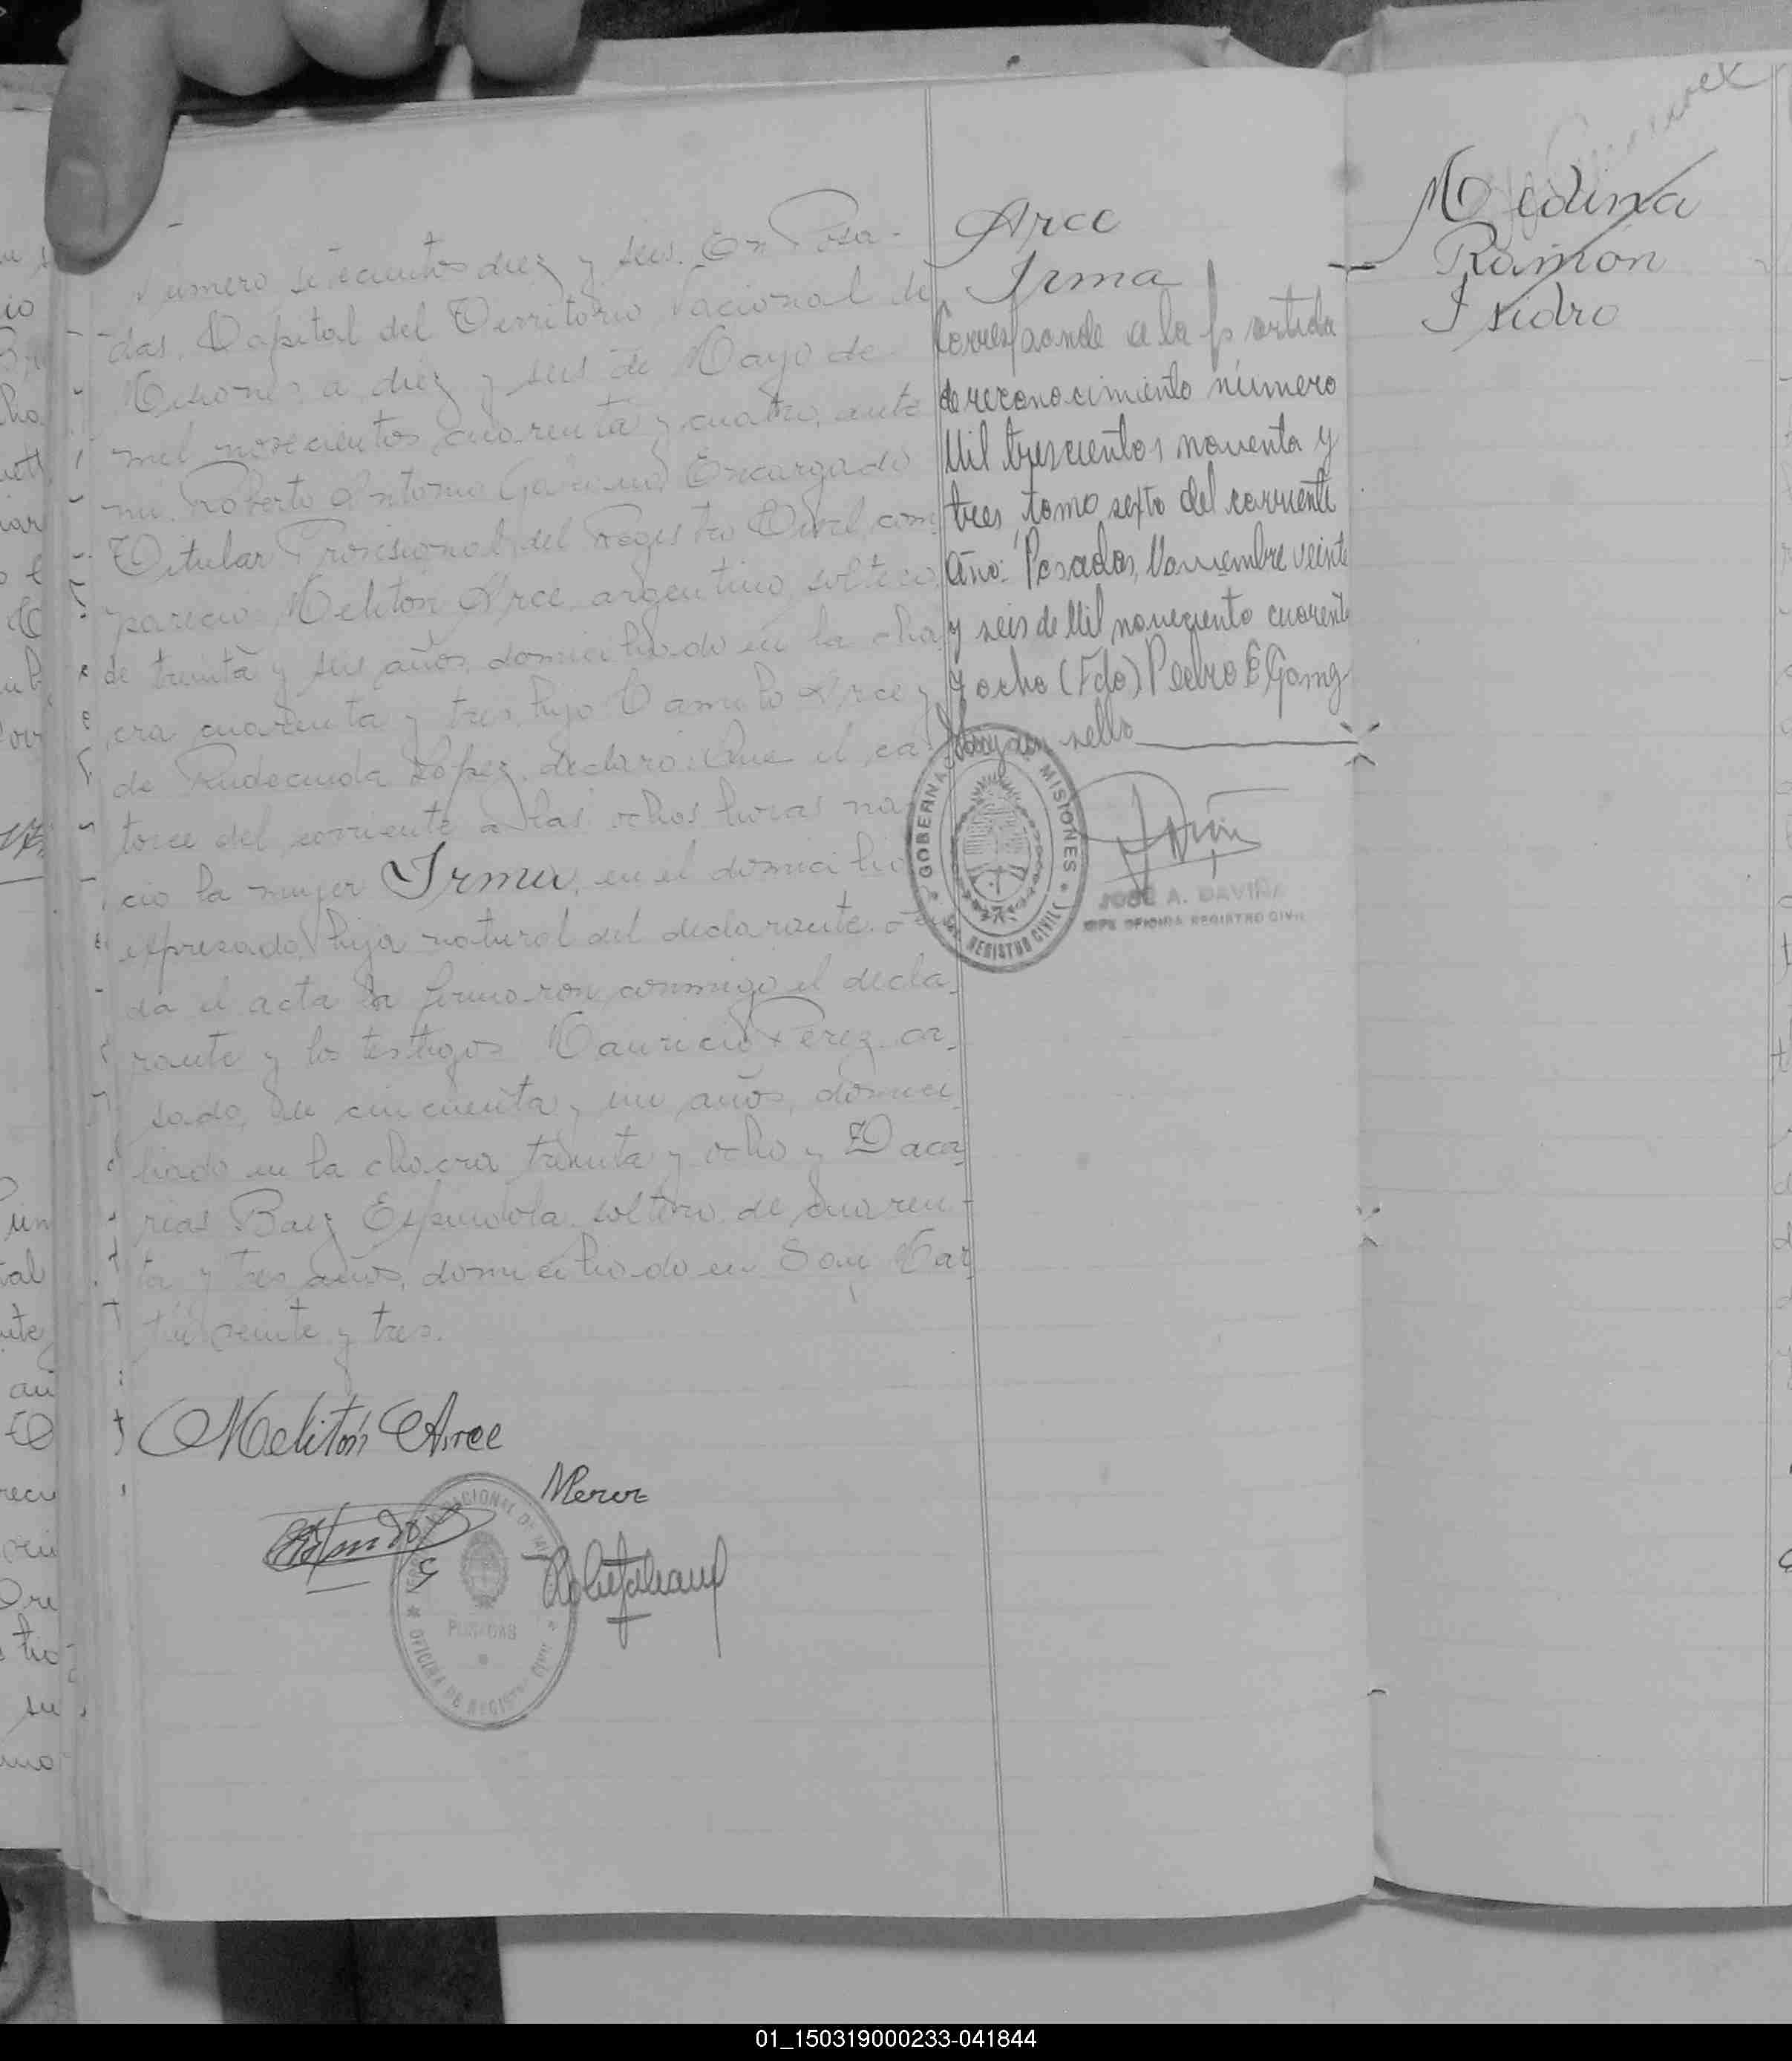 Número setecientos diez y seis. En Posa-
das, Capital del Territorio Nacional de
Misiones, a diez y seis de Mayo de
mil novecientos cuarenta y cuatro, ante
mi, Roberto Antonio Encargado
Titular Provisional del Registro Civil, com
parecio Melitón Arce, argentino, soltero,
de treinta y seis años, domiciliado en la cha
cra cuarenta y tres, hijo Camilo Arce y
de Rudecinda Lopez, declaró: Que el ca
torce del corriente a las ochos horas na
cio la mujer Irma, en el domicilio
expresado, hija natural del declarante.
da el acta la firmaron conmigo el decla-
rante y los testigos Mauricio Perez, ca-
sado, de cincuenta y un años, domici
liado en la chacra treinta y ocho y Zaca
rias Baez Espindola, soltero, de cuaren-
ta y tres años, domiciliado en San Mar
tín veinte y tres.
Melitón Arce
MPerez
GOBERNACION NACIONAL DE MISIONES
POSADAS
* OFICINA DE REGISTRO CIVIL *
Arce
Irma
Corresponde a la partida
de reconocimiento número
Mil trescientos noventa y
tres, tomo sexto del corriente
Año: Posadas, Noviembre veinte
y seis de Mil noveciento cuarenta
y ocho (Fdo) Pedro E
Hay un sello
GOBERNACION DE MISIONES
REGISTRO CIVIL
JOSE A. DAVIÑA
JEFE OFICINA REGISTRO CIVIL
Medina
Ramón
Isidro
01_150319000233-041844